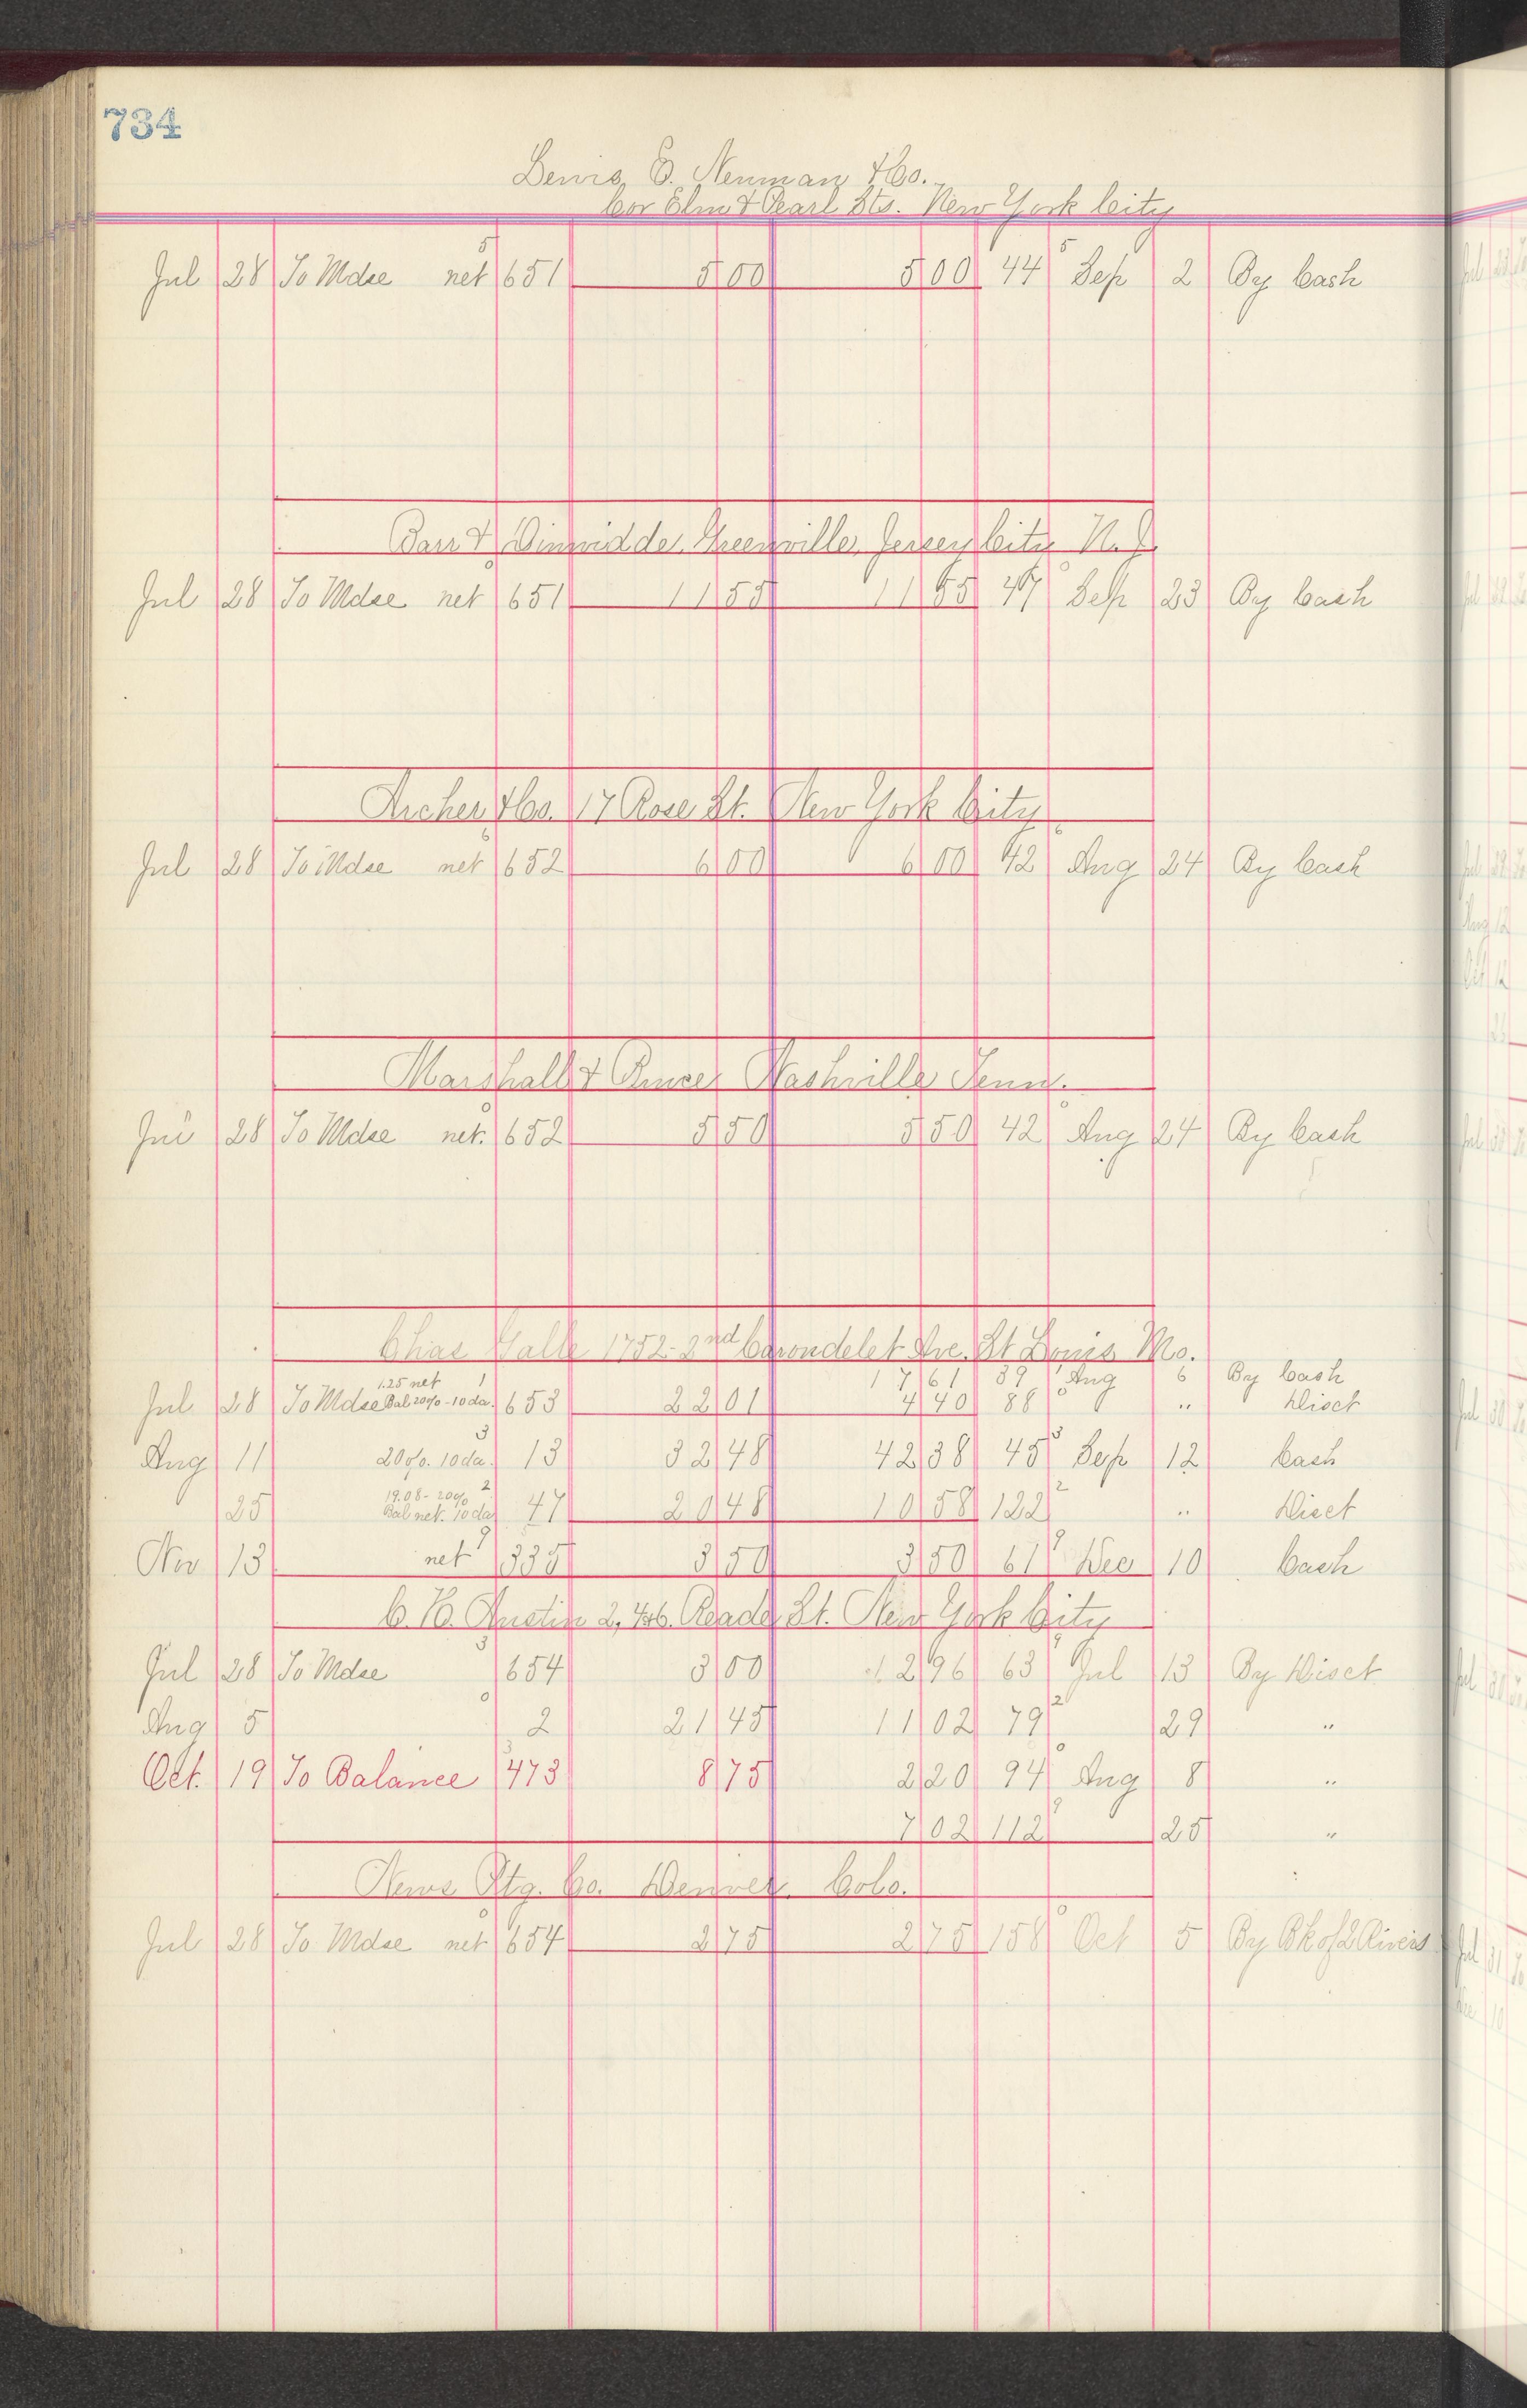 734
Lewis E. Neuman & Co.
Cor Elm & Pearl Sts. New York City
Jul 28 To Mdse net 5 651 5 00 5 00 44 5 Sep 2 By Cash
Barr & Dinwiddee Greenville, Jersey City N. J.
Jul 28 To Mdse net 0 651 11 55 11 55 47 0 Sep 23 By Cash
Archer & Co. 17 Rose St. New York City
Jul 28 To Mdse net 6 652 6 00 6 00 42 6 Aug 24 By Cash
Marshall & Bruce Nashville Tenn.
Jul 28 To Mdse net. 0 652 5 50 5 50 42 0 Aug 24 By Cash
Chas Galle 1752-2nd Carondelet Ave. St Louis Mo.
1.25 net 1 17 61 39 1 Aug 6 By Cash
Jul 28 To Mdse Bal 20% - 10 da. 653 22 01 4 40 88 0 " Disct
Aug 11 20%. 10 da. 3 13 32 48 42 38 45 3 Sep 12 Cash
19.08 - 20% 2
25 Bal net. 10 da 47 20 48 10 58 122 2 " Disct
Nov 13 net 9 335 3 50 3 50 61 9 Dec 10 Cash
C. H. Austin 2, 4 & 6. Reade St. New York City
Jul 28 To Mdse 3 654 3 00 12 96 63 Jul 13 By Disct
Aug 5 0 2 21 45 11 02 79 2 29 "
Oct. 19 To Balance 3 473 8 75 2 20 94 0 Aug 8 "
7 02 112 9 25 "
News Ptg. Co. Denver Colo.
Jul 28 To Mdse net 0 654 2 75 2 75 158 0 Oct 5 By Bk of 2 Rivers